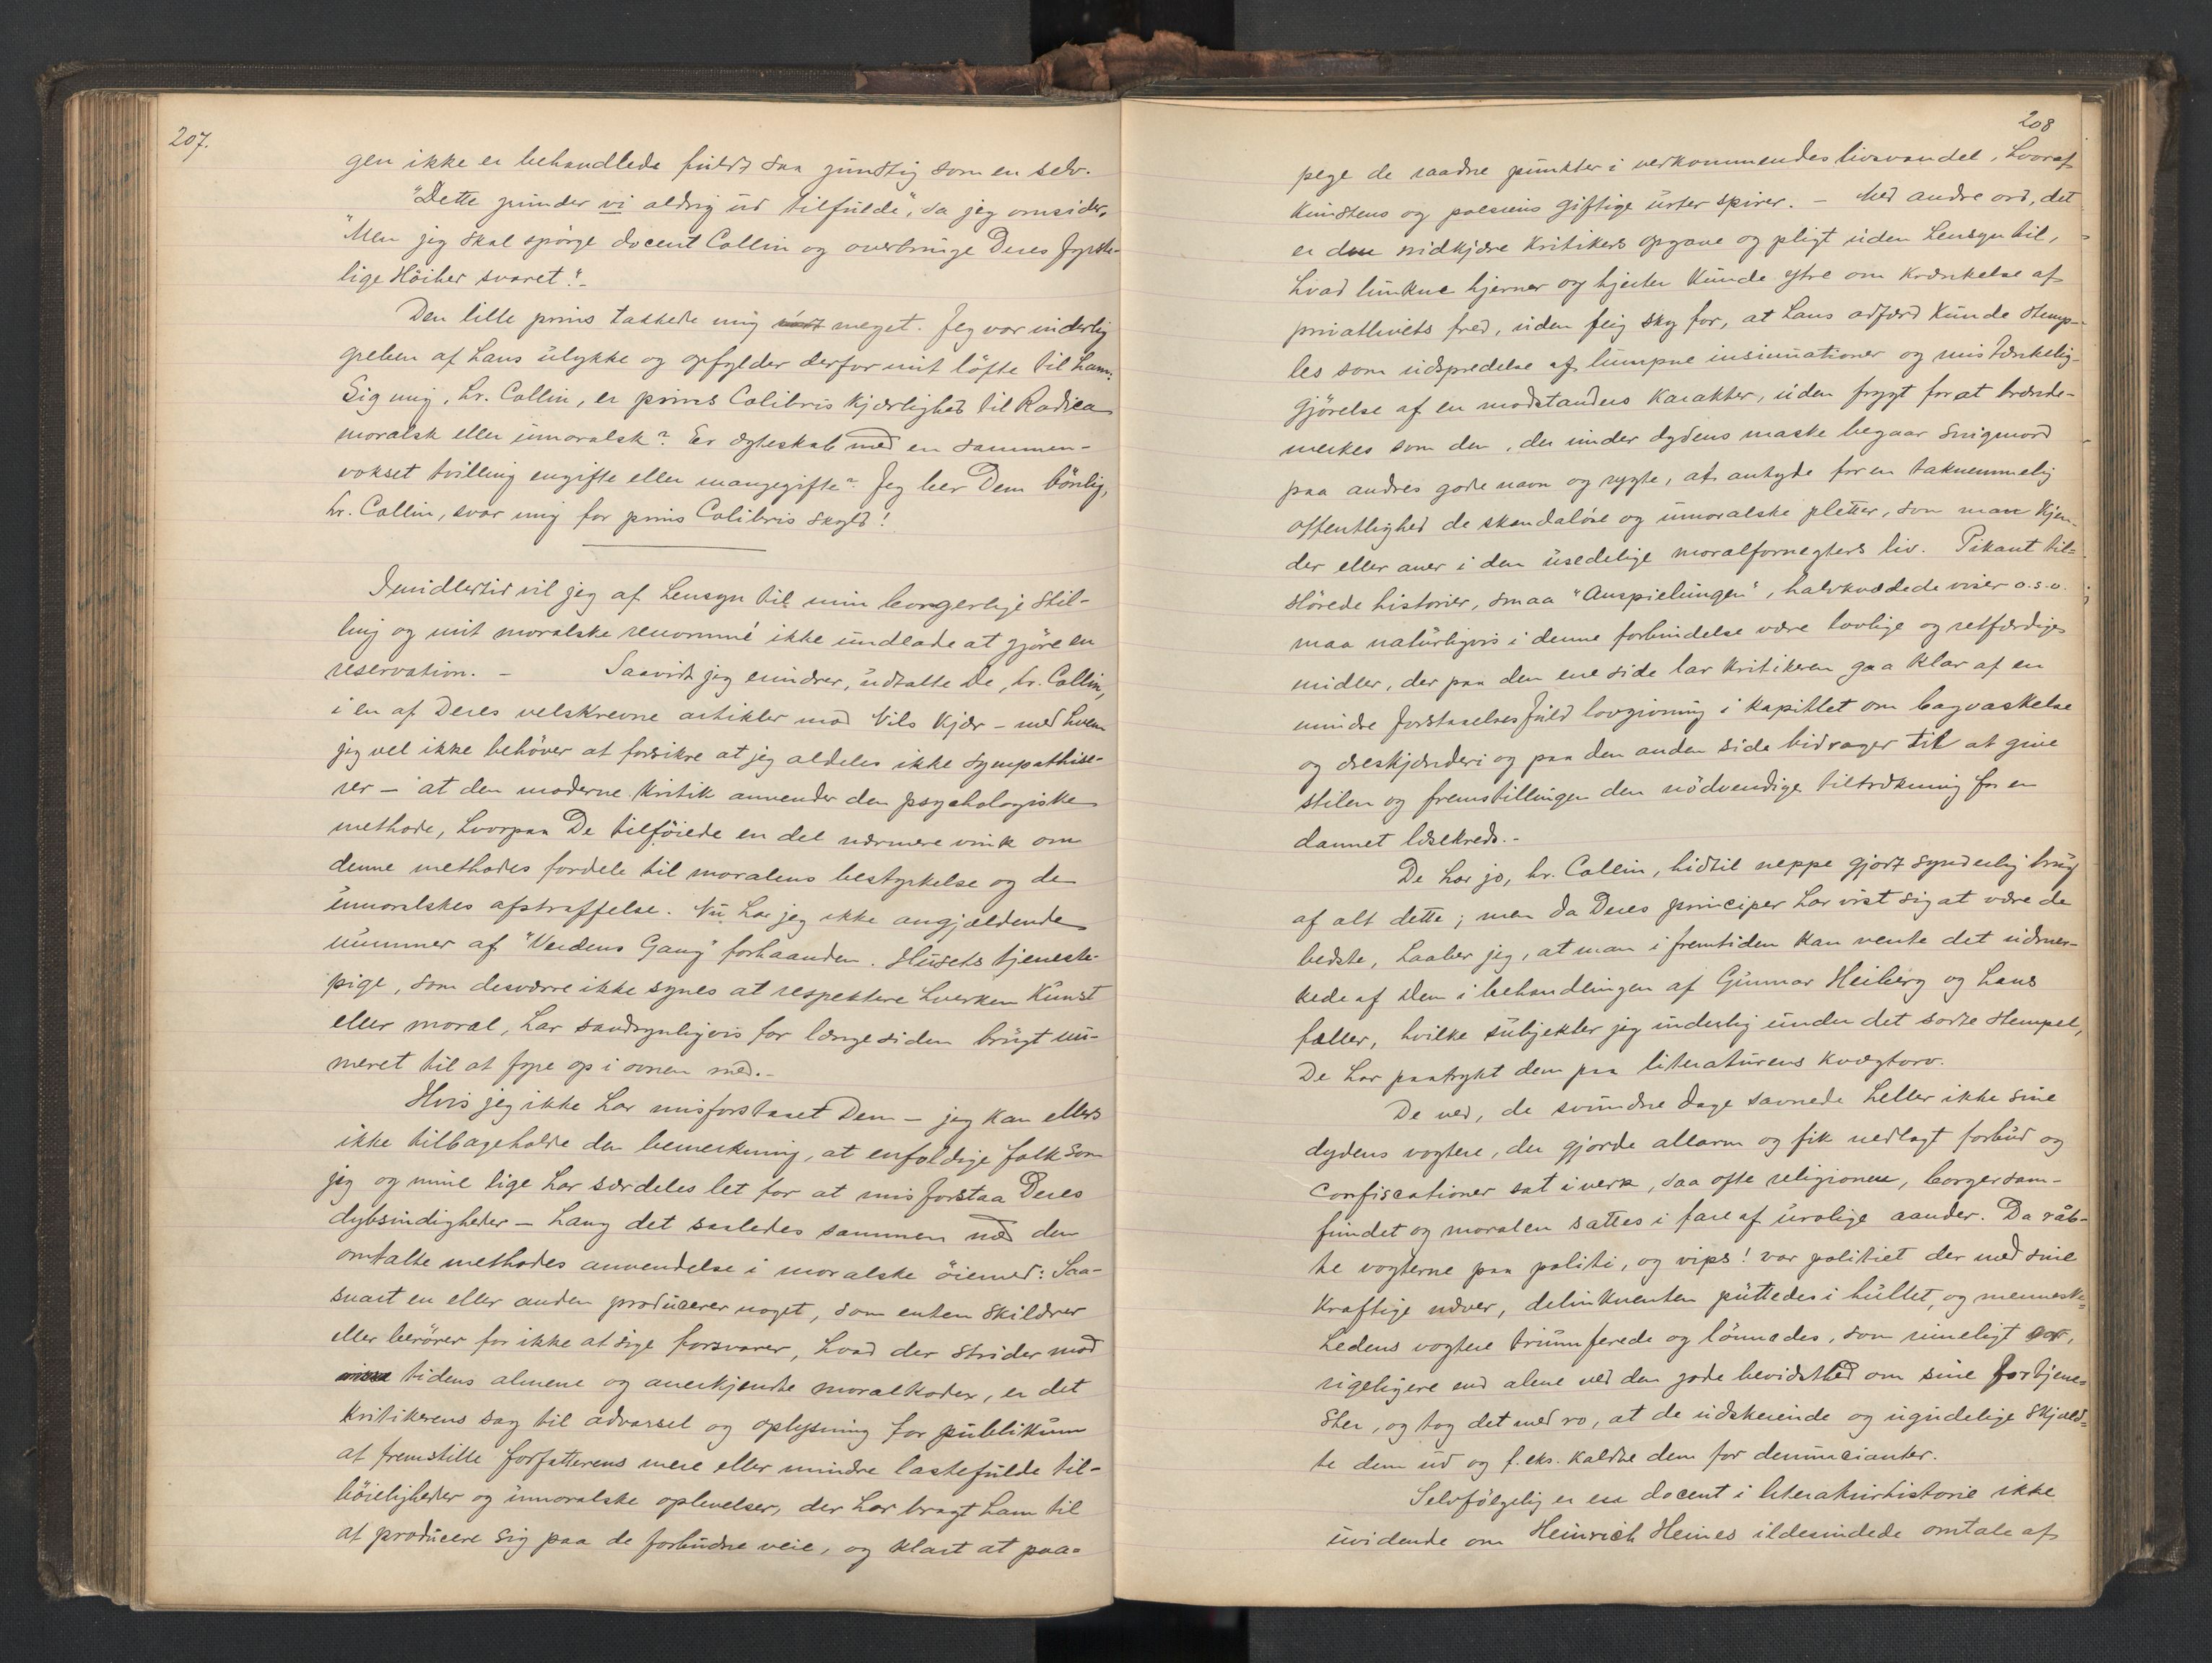 207.
gen ikke er behandlede fuldt saa gunstig som en selv.
"Dette grunder vi aldrig ud tilfulde", sa jeg omsider,
"Men jeg skal spörge docent Collin og overbringe Deres fyrste-
lige Höihet svaret".-
Den lille prins takkede mig meget. Jeg var inderlig
greben af hans ulykke og opfylder derfor mit löfte til ham:
Sig mig, hr. Collin, er prins Colibris kjærlighed til Radica
moralsk eller umoralsk? Er ægteskab med en sammen-
vokset tvilling engifte eller mangegifte? Jeg ber Dem bönlig,
hr. Collin, svar mig for prins Colibris skyld!
Imidlertid vil jeg af hensyn til min borgerlige stil-
ling og mit moralske renommé ikke undlade at gjöre en
reservation. - Saavidt jeg erindrer, udtalte De, hr. Collin,
i en af Deres velskrevne artikler mod Nils Kjær - med hvem
jeg vel ikke behöver at forsikre at jeg aldeles ikke sympathise-
rer - at den moderne kritik anvender den psychologiske
methode, hvorpaa De tilföiede en del nærmere vink om
denne methodes fordele til moralens bestyrkelse og de
umoralskes afstraffelse. Nu har jeg ikke angjældende
nummer af "Verdens Gang" forhaanden. Husets tjeneste-
pige, som desværre ikke synes at respektere hverken kunst
eller moral, har sandsynligvis for længe siden brugt nu-
meret til at fyre op i ovnen med.-
Hvis jeg ikke har misforstaaet Dem - jeg kan ellers
ikke tilbageholde den bemerkning, at enfoldige folk som
jeg og mine lige har særdeles let for at misforstaa Deres
dybsindigheder - hang det saaledes sammen med den
omtalte methodes anvendelse i moralske öiemed: Saa-
snart en eller anden producerer noget, som enten skildrer
eller berörer for ikke at sige forsvarer, hvad der strider mod
tidens almene og anerkjendte moralkodex, er det
kritikerens sag til advarsel og oplysning for publikum
at fremstille forfatterens mere eller mindre lastefulde til-
böieligheder og umoralske oplevelser, der har bragt ham til
at producere sig paa de forbudne veie, og klart at paa=
208
pege de raadne punkter i vedkommendes livsvandel, hvoraf
kunstens og poesiens giftige urter spirer. - Med andre ord, det
er den nidkjære kritikers opgave og pligt uden hensyn til,
hvad lunkne hjerner og hjerter kunde ytre om krænkelse af
privatlivets fred, uden feig sky for, at hans adfærd kunde stemp-
les som udspredelse af lumpne insinuationer og mistænkelig-
gjørelse af en modstanders karakter, uden frygt for at brænde-
merkes som den, der under dydens maske begaar snigmord
paa andres gode navn og rygte, at antyde for en taknemmelig
offentlighed de skandalöse og umoralske pletter, som man kjen-
der eller aner i den usedelige moralfornegters liv. Pikant til=
slörede historier, smaa "Anspielungen", halvkvædede viser o.s.v.
maa naturligvis i denne forbindelse være lovlige og retfærdige
midler, der paa den ene side lar kritikeren gaa klar af en
mindre forstaaelsesfuld lovgivning i kapitlet om bagvaskelse
og æreskjænderi og paa den anden side bidrager til at give
stilen og fremstillingen den nödvendige tiltrækning for en
dannet læsekreds.-
De har jo, hr. Collin, hidtil neppe gjort synderlig brug
af alt dette; men da Deres principer har vist sig at være de
bedste, haaber jeg, at man i fremtiden kan vente det udmer-
kede af Dem i behandlingen af Gunnar Heiberg og hans
fæller, hvilke subjekter jeg inderlig under det sorte stempel,
De har paatrykt dem paa literaturens kvægtorv.
De ved, de svundne dage savnede heller ikke sine
dydens vogtere, der gjorde allarm og fik nedlagt forbud og
confiscationer sat iverk, saa ofte religionen, borgersam-
fundet og moralen sattes i fare af urolige aander. Da råb-
te vogterne paa politi, og vips! var politiet der med sine
kraftige næver, delinkventen puttedes i hullet, og menneske=
hedens vogtere triumferede og lönnedes, som rimeligt var,
rigeligere end alene ved den gode bevidsthed om sine fortjene=
ster, og tog det med ro, at de udskeiende og ugudelige skjæld=
te dem ud og f. eks. kaldte dem for denuncianter.
Selvfölgelig er en docent i literaturhistorie ikke
uvidende om Heinrich Heines ildesindede omtale af